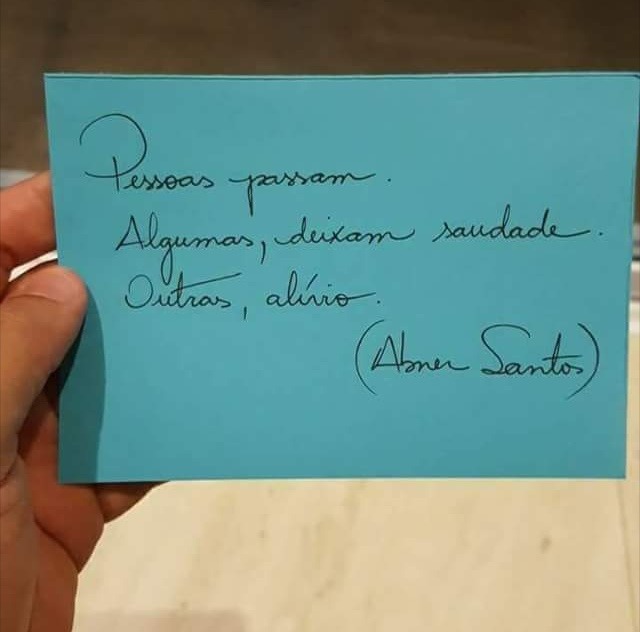 Pessoas passam.
Algumas, deixam saudade.
Outras, alívio.
(Abner Santos)